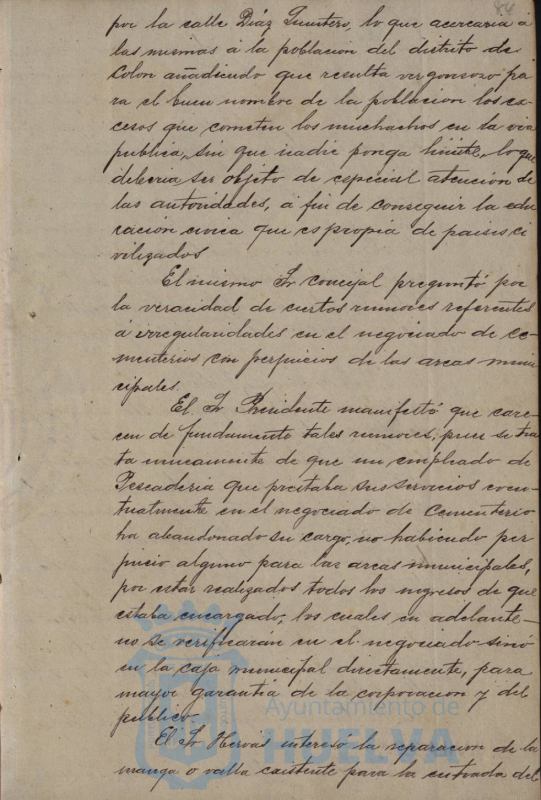 por la calle Diaz Quintero, lo que acercaria á
las mismas á la poblacion del distrito de
Colon añadiendo que resulta vergonsoso pa
ra el buen nombre de la poblacion los ex-
cesos que cometen los muchachos en la via
publica, sin que nadie ponga limite, lo que
deberia ser objeto de especial atencion de
las autoridades, á fin de conseguir la edu
cacion civica que es propia de paises ci
vilizados
El mismo Sr concejal preguntó por
la veracidad de ciertos rumores referentes
á irregularidades en el negociado de Ce-
menterios con perjuicios de las arcas muni-
cipales.
El Sr Presidente manifestó que care-
cen de fundamento tales rumores, pues se tra
ta unicamente de que un empleado de
Pescaderia que prestaba sus servicios even-
tualmente en el negociado de Cementerio
ha abandonado su cargo, no habiendo per
juicio alguno para las arcas municipales,
por estar realizados todos los ingresos de que
estaba encargado, los cuales en adelante
no se verificarán en el negociado sinó
en la caja municipal directamente, para
mayor garantia de la corporacion y del
publico.
El Sr Hervas interesó la reparacion de la
manga o valla existente para la entrada del
Ayuntamiento de
HUELVA